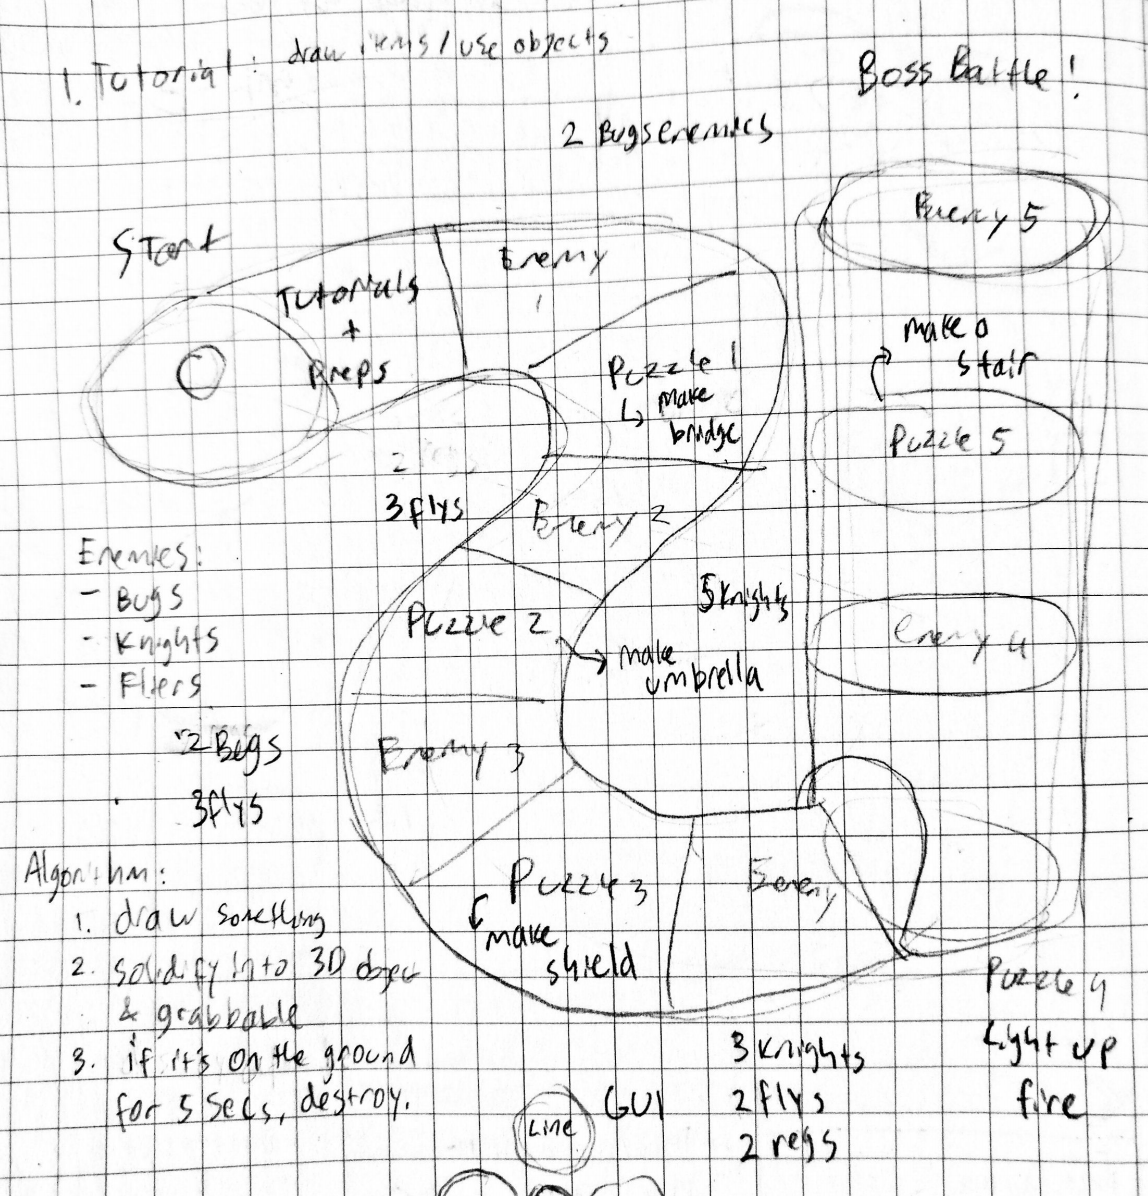 1. Tutorial: draw items / use objects
Boss Battle!
2 Bugs enemies
Enemy 5
Start
Enemy
1
Tutorials
+
Preps
make a
stair
Puzzle 1
make
bridge
Puzzle 5
2
3 flys
Enemy 2
Enemies:
- Bugs
- Knights
- Fliers
5 Knights
Puzzle 2
make
umbrella
Enemy 4
2 Bugs
3 flys
Enemy 3
Algorithm:
1. draw something
2. solidify into 3D object
& grabbable
3. if it's on the ground
for 5 secs, destroy.
Puzzle 3
make
shield
Enemy
Puzzle 4
Light up
fire
3 Knights
2 flys
2 regs
Line
GUI